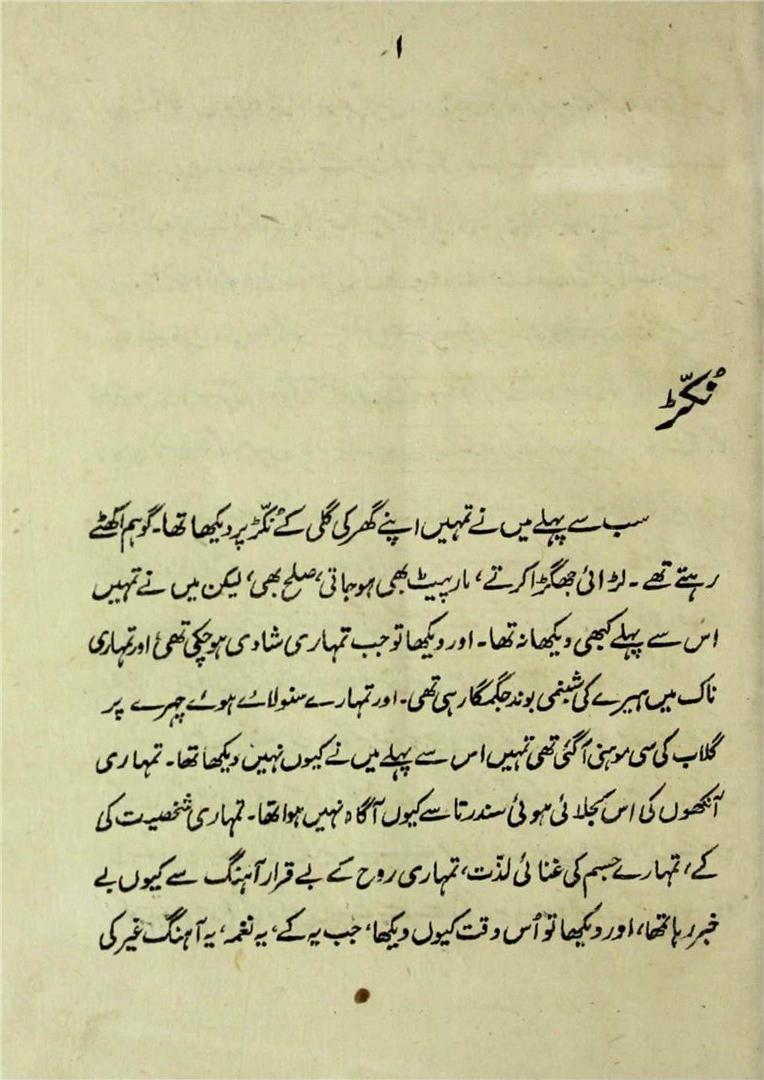 ۱
نُکّڑ
سب سے پہلے میں نے تمہیں اپنے گھر کی گلی کے نُکّڑ پر دیکھا تھا۔ گو ہم اکھٹے
رہتے تھے۔ لڑائی جھگڑا کرتے، مار پیٹ بھی ہو جاتی، صلح بھی، لیکن میں نے تمہیں
اس سے پہلے کبھی دیکھا نہ تھا۔ اور دیکھا تو جب تمہاری شادی ہو چکی تھی اور تمہاری
ناک میں ہیرے کی شبنمی بوند جگمگا رہی تھی۔ اور تمہارے سنولائے ہوئے چہرے پر
گلاب کی سی موہنی آ گئی تھی تمہیں اس سے پہلے میں نے کیوں نہیں دیکھا تھا۔ تمہاری
آنکھوں کی اس کجلائی ہوئی سندرتا سے کیوں آگاہ نہیں ہوا تھا۔ تمہاری شخصیت کی
کے، تمہارے جسم کی غنائی لذّت، تمہاری روح کے بے قرار آہنگ سے کیوں بے
خبر رہا تھا، اور دیکھا تو اُس وقت کیوں دیکھا، جب یہ کے، یہ نغمہ، یہ آہنگ غیر کی